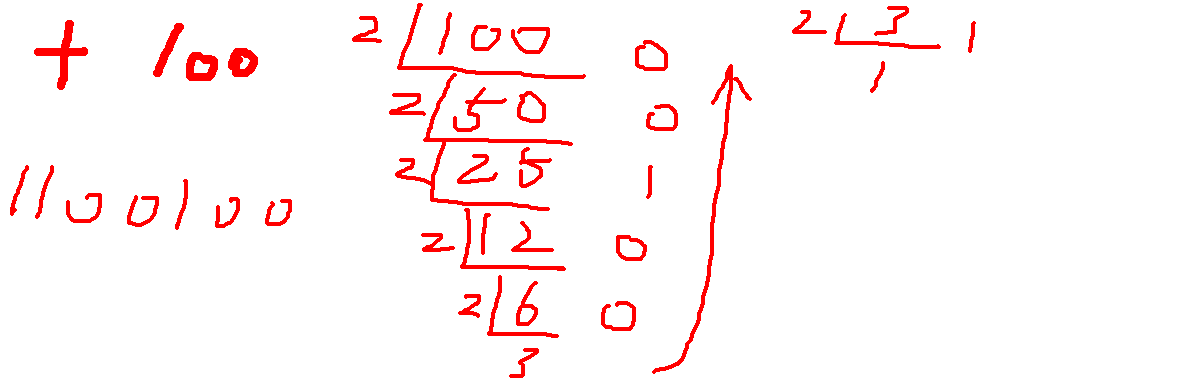 + 100
1100100
2 100 0
2 50 0
2 25 1
2 12 0
2 6 0
3
2 3 1
1